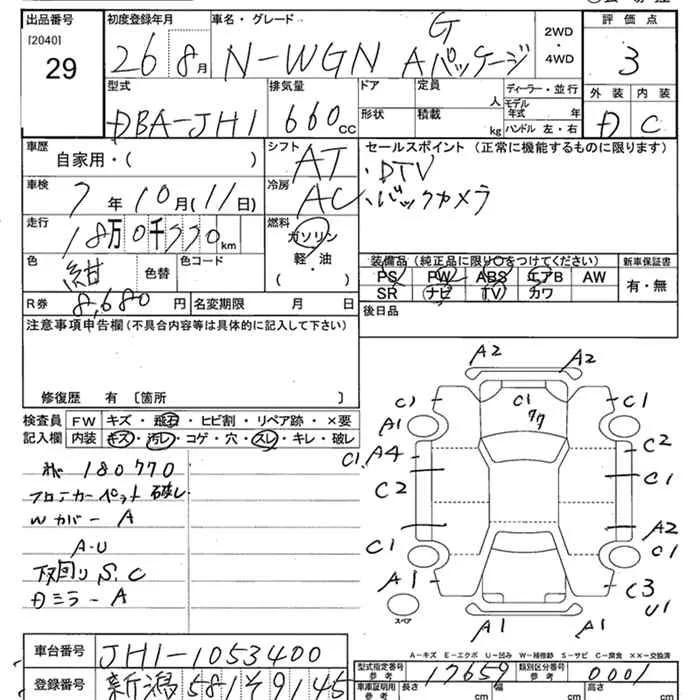 出品番号
[2040]
29
初度登録年月
26 8月
車名・グレード
N-WGN G Aパッケージ
2WD
・
4WD
評価点
3
外装 内装
D C
型式
DBA-JH1
排気量
660cc
ドア
定員
人
形状
積載
kg
ディーラー・並行
モデル年式 年
ハンドル 左・右
車歴
自家用・( )
シフト
AT
セールスポイント(正常に機能するものに限ります)
・DTV
・バックカメラ
車検
7年10月(11日)
冷房
AC
走行
18万0千770km
燃料
ガソリン
軽・油
・
( )
色
紺
色替
色コード
装備品(純正品に限り○をつけてください)
PS PW ABS エアB AW
SR ナビ TV カワ
新車保証書
有・無
R券 8,680円
名変期限 月 日
後日品
注意事項申告欄(不具合内容等は具体的に記入して下さい)
修復歴 有〔箇所 〕
検査員記入欄
FW キズ・飛石・ヒビ割・リペア跡・×要
内装 キズ・汚レ・コゲ・穴・スレ・キレ・破レ
180770
フロアカーペット破レ
Wカバー A
A-U
下回りS.C
Dミラー A
A2 A2
C1 C1 C1
77
A1
C2
C1. A4
C1
C2
A2
C1 C1
A1 C3
U1
スペア
A1 A1
A-キズ E-エクボ U-凹み W-補修跡 S-サビ C-腐食 ××-交換済
車台番号
JH1-1053400
登録番号
新潟581そ9145
型式指定番号
参考
17659
類別区分番号
参考
0001
車庫証明用
参考
長さ cm
幅 cm
高さ cm